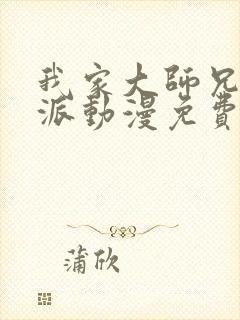 我家大師兄
派動漫免費
蒲欣